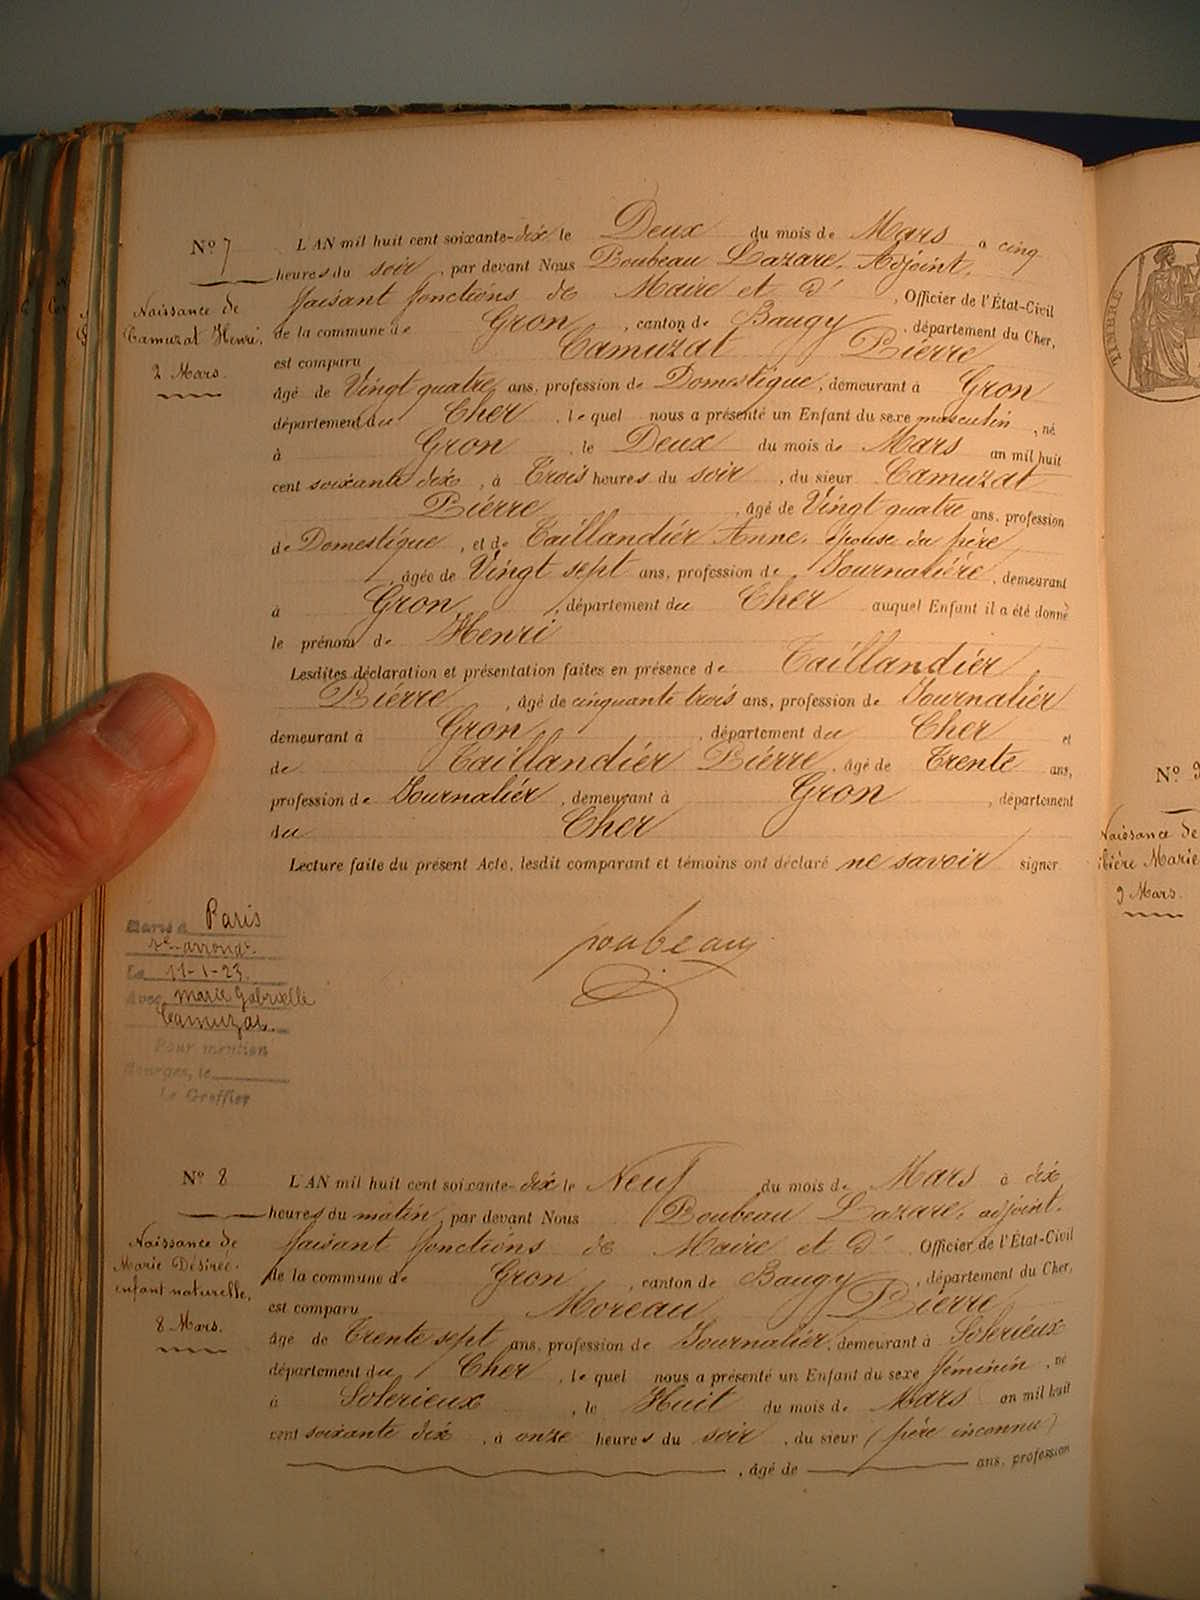 N° 7
L'AN mil huit cent soixante-dix le Deux du mois de Mars à cinq
heures du soir, par devant Nous Poubeau Lazare, Adjoint,
Naissance de
Camuzat Henri,
2 Mars.
faisant fonctions de Maire et d' , Officier de l'État-Civil
de la commune de Gron , canton de Baugy , département du Cher,
est comparu Camuzat Pierre
âgé de Vingt quatre ans, profession de Domestique, demeurant à Gron
département du Cher , lequel nous a présenté un Enfant du sexe masculin , né
à Gron le Deux du mois de Mars an mil huit
cent soixante dix, à Trois heures du soir , du sieur Camuzat
Pierre , âgé de Vingt quatre ans, profession
de Domestique , et de Taillandier Anne, épouse du père,
, âgée de Vingt sept ans, profession de Journalière, demeurant
à Gron , département du Cher auquel Enfant il a été donné
le prénom de Henri
Lesdites déclaration et présentation faites en présence de Taillandier
Pierre , âgé de cinquante trois ans, profession de Journalier
demeurant à Gron , département du Cher et
de Taillandier Pierre, âgé de Trente ans,
profession de Journalier , demeurant à Gron , département
du Cher
Lecture faite du présent Acte, lesdit comparant et témoins ont déclaré ne savoir signer
poubeau
Marié à Paris
arrondt.
Le 11-1-23
Avec marie Gabrielle
Camuzat.
Pour mention
Bourges, le
Le Greffier
N° 8
L'AN mil huit cent soixante-dix le Neuf du mois de Mars à dix
heures du matin, par devant Nous Poubeau Lazare, adjoint,
Naissance de
Marie Désirée,
enfant naturelle,
8 Mars.
faisant fonctions de Maire et d' Officier de l'État-Civil
de la commune de Gron , canton de Baugy , département du Cher,
est comparu Moreau Pierre
âgé de Trente sept ans, profession de Journalier, demeurant à Solerieux
département du Cher , lequel nous a présenté un Enfant du sexe féminin , né
à Solerieux , le Huit du mois de Mars an mil huit
cent soixante dix , à onze heures du soir , du sieur (père inconnu)
, âgé de ans, profession
TIMBRE
N° 9
Naissance de
Marie
9 Mars.